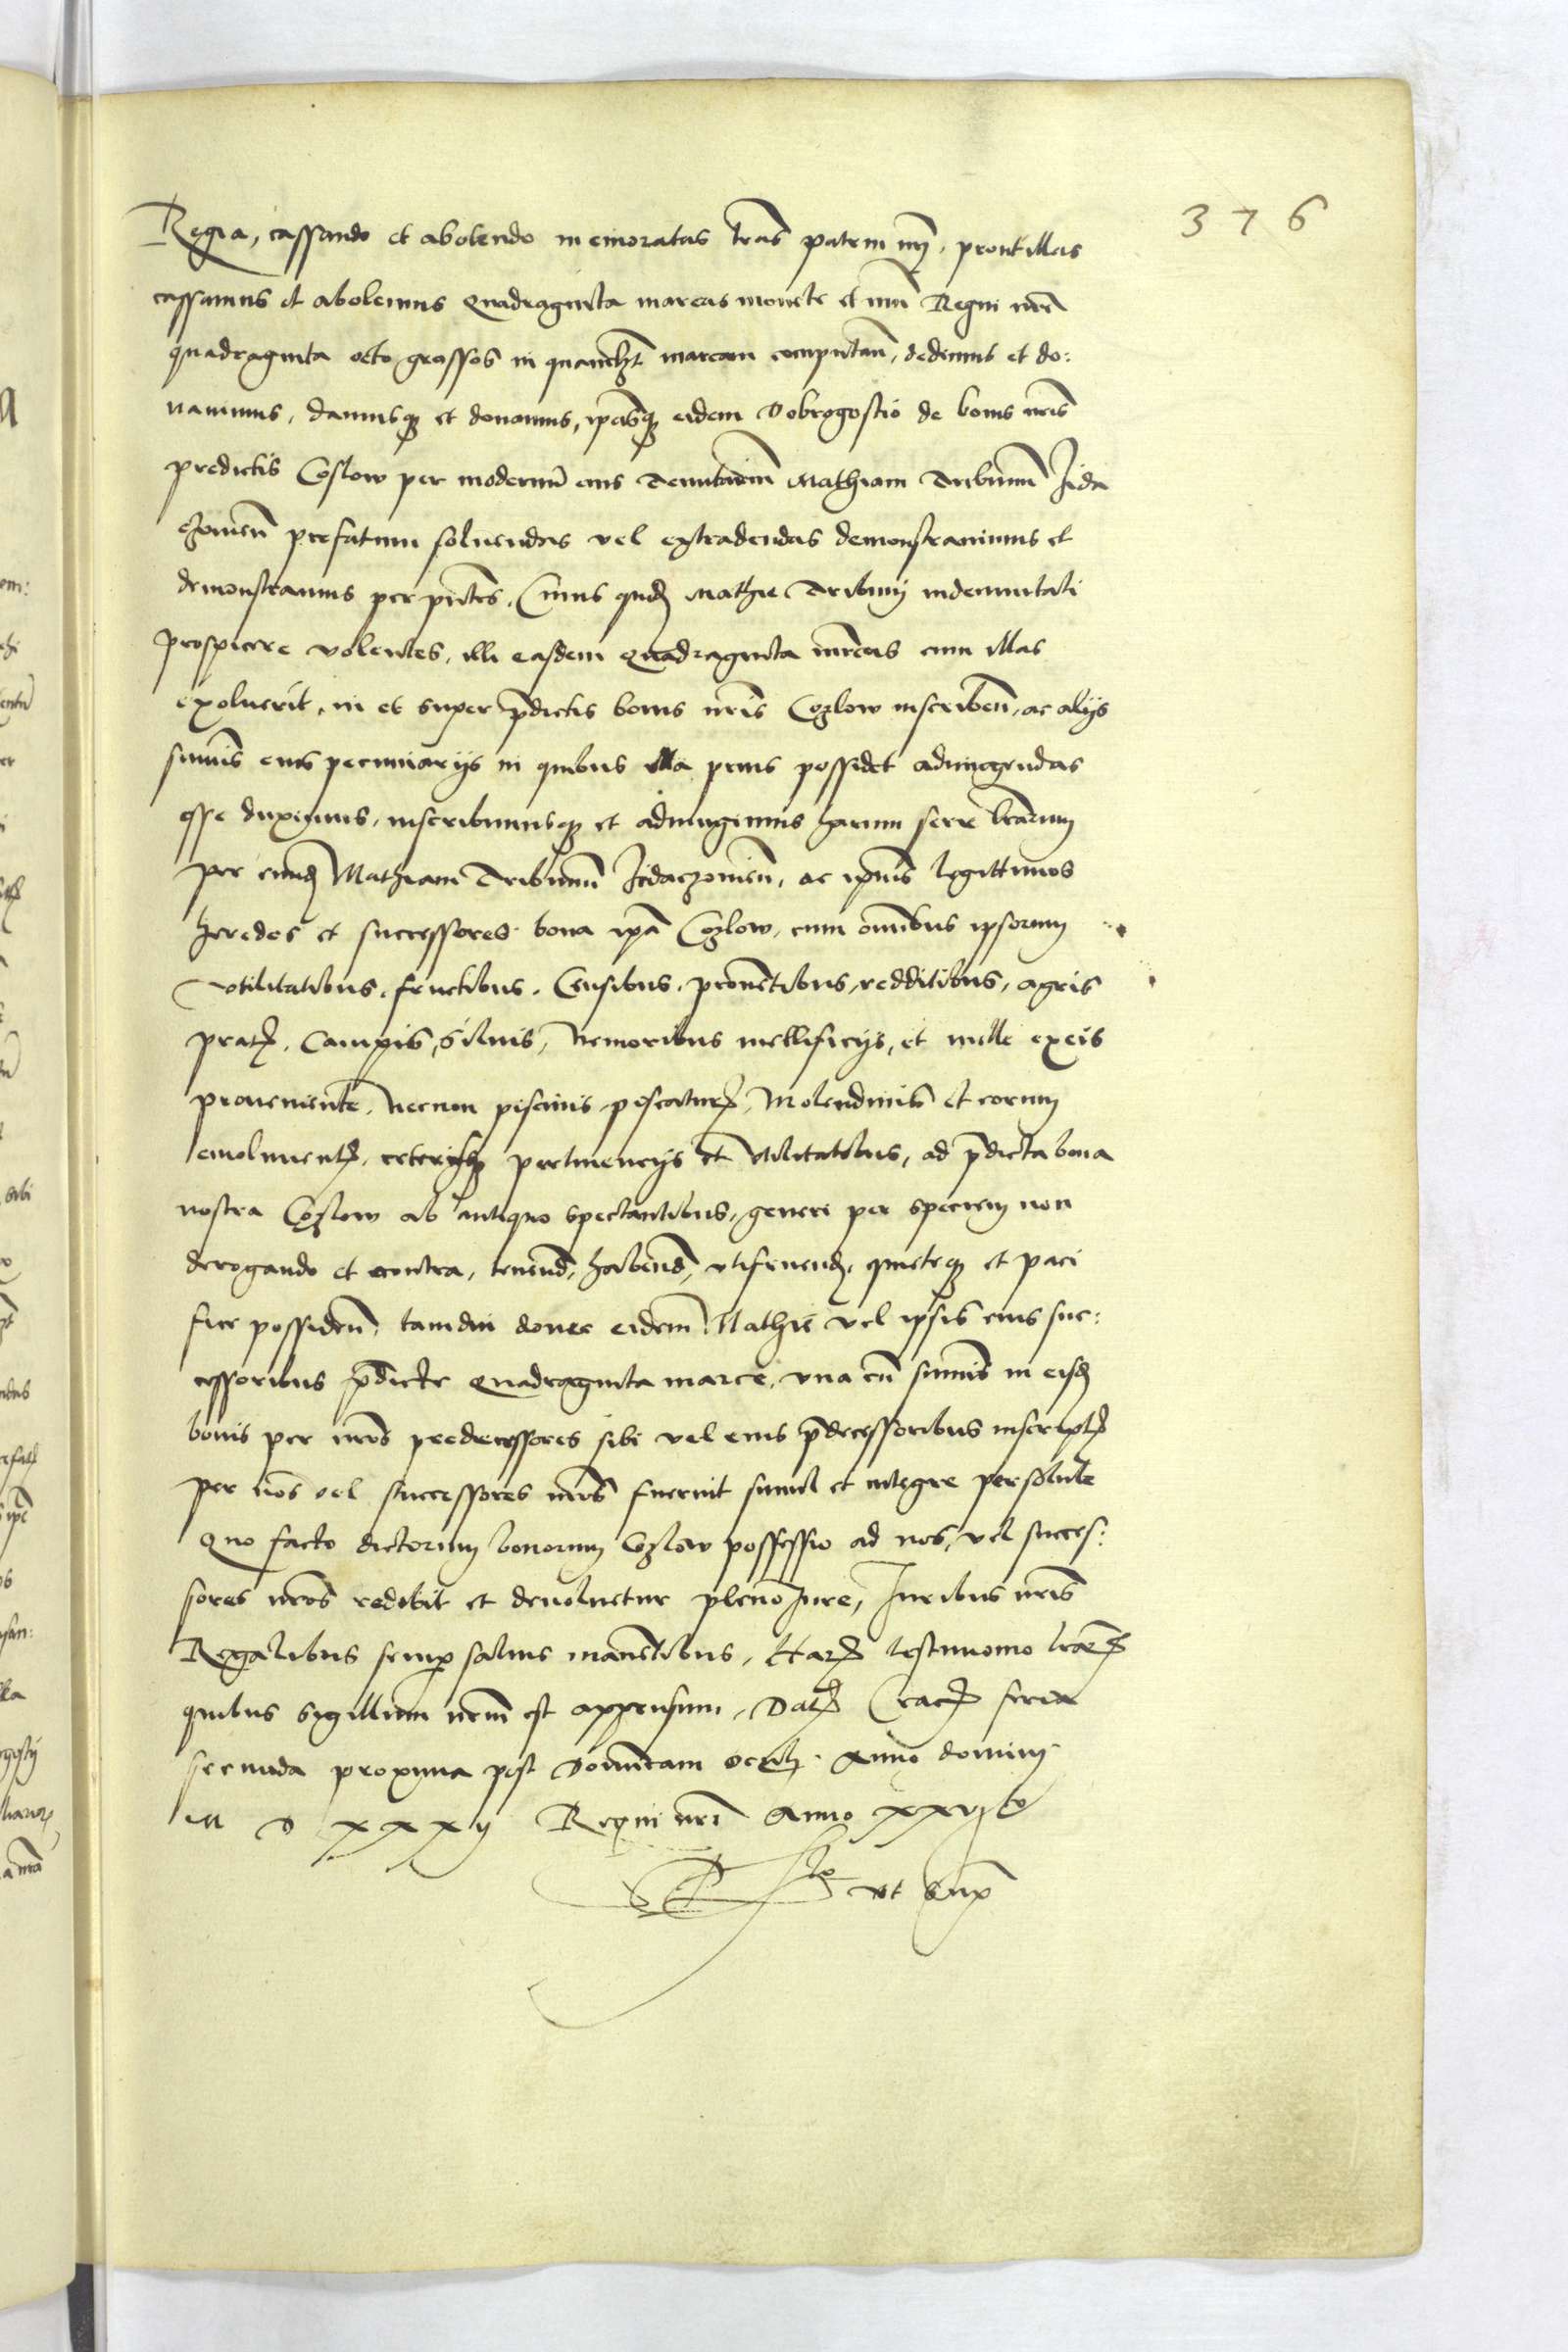 376
Regia, cassando et abolendo memoratas lras patern nri, prout illas
cassamus et abolemus Quadraginta marcas monete et num Regni nri
quadraginta octo grossos in quamlzt marcam computan, dedimus et do:
navimus, damusq et donamus, ipasq eidem Dobrogostio de bonis nris
predictis Coslow per modernu eius Tenutariu Mathiam Tribunu Zida
czovien prefatum solvendas vel extradendas demonstravimus et
demonstramus per pntes. Cuius quid Mathie Tribuni indemnitati
prospicere volentes, illi easdem Quadraginta mrcas cum illas
exolverit, in et super pdictis bonis nris Cozlow inscriben, ac alijs
sumis eius pecuniarijs in quibus illa prius possidet adiungendas
esse duximus, inscribimusq et adiungimus harum serie lrarum
Per eund Mathiam Tribunu Zidaczovien, ac ipius legittimos
heredes et successores bona ipa Cozlow, cum omibus ipsorum
Utilitatibus, fructibus, Censibus, proventibus, redditibus, agris
prat, Campis, Silvis, Nemoribus mellificijs, et melle ex eis
proveniente, Necnon piscinis, piscatur, Molendinis et eorum
emolument, ceterisq pertinencijs et Utilitatibus, ad pdicta bona
nostra Cozlow ab antiquo spectantibus, generi per speciem non
derogando et econtra, tenend, habend, utifruend, quieteq et paci
fice possiden, tamdiu donec eidem Mathie vel ipsis eius suc:
cessoribus pdicte Quadraginta marce, una cu sumis in eisd
bonis per nros predecessores sibi vel eius pdecessoribus inscript
per nos vel successores nros fuerint simul et integre persolute
Quo facto dictorum bonorum Cozlow possessio ad nos, vel succes:
sores nros redibit et devolvetur pleno Jure, Juribus nris
Regalibus semp salvis manentibus, Har testimonio lrar
quibus Sigillum nrum est appensum. Dat Crac feria
secunda proxima post Dominicam Oculi. Anno domini
M D xxxij Regni nri Anno xxvjto
ut Sup